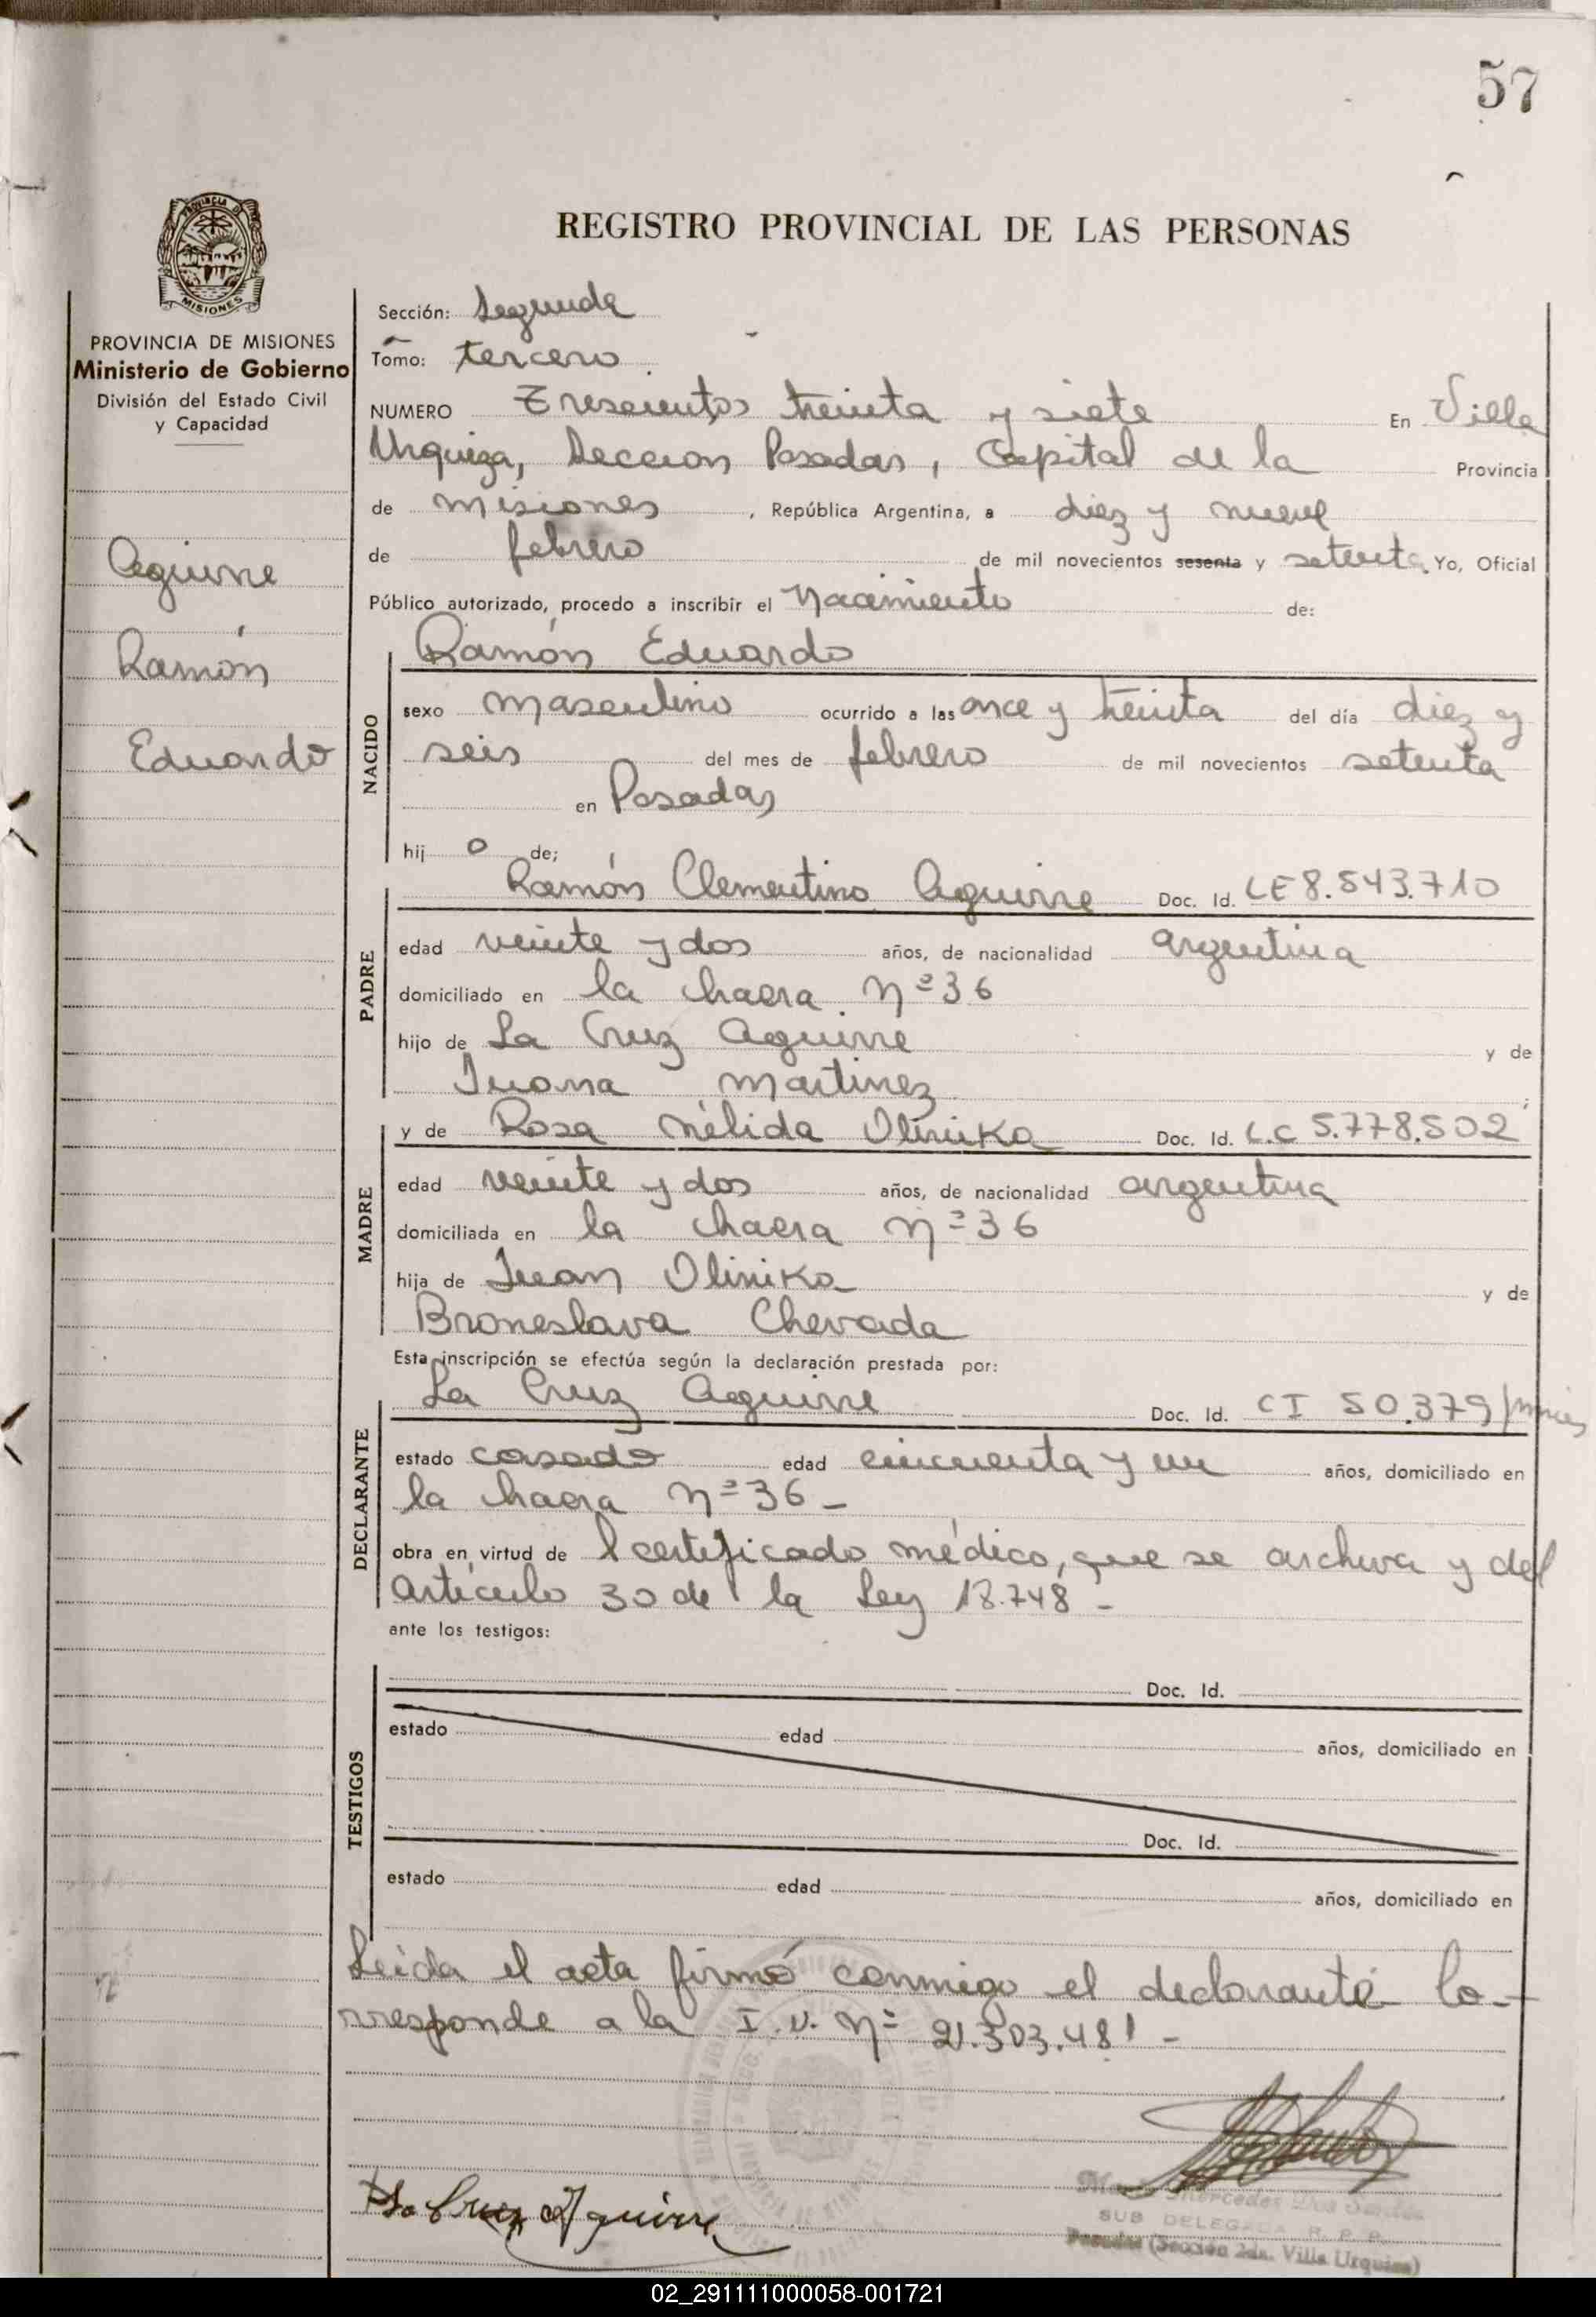 57
REGISTRO PROVINCIAL DE LAS PERSONAS
PROVINCIA DE MISIONES
Ministerio de Gobierno
División del Estado Civil
y Capacidad
Aguirre
Ramón
Eduardo
Sección: Segunda
Tomo: tercero
NUMERO Trescientos treinta y siete En Villa
Urquiza, Seccion Posadas, Capital de la Provincia
de misiones, República Argentina, a diez y nueve
de febrero de mil novecientos sesenta y setenta Yo, Oficial
Público autorizado, procedo a inscribir el Nacimiento de:
NACIDO
Ramón Eduardo
sexo masculino ocurrido a las once y treinta del día diez y
seis del mes de febrero de mil novecientos setenta
en Posadas
hij o de;
PADRE
Ramón Clementino Aguirre Doc. Id. LE 8.543.710
edad veinte y dos años, de nacionalidad argentina
domiciliado en la chacra Nº 36
hijo de La Cruz Aguirre y de
Juana Martinez ;
MADRE
y de Rosa Nélida Olinika Doc. Id. L.C 5.778.502
edad veinte y dos años, de nacionalidad argentina
domiciliada en la chacra nº 36
hija de Juan Oliniko y de
Broneslava Chevada
Esta inscripción se efectúa según la declaración prestada por:
DECLARANTE
La Cruz Aguirre Doc. Id. CI 50.379/
estado casado edad cincuenta y un años, domiciliado en
la chacra nº 36 -
obra en virtud de l certificado médico, que se archiva y del
articulo 30 de la Ley 18.748 -
ante los testigos:
TESTIGOS
Doc. Id.
estado edad años, domiciliado en
Doc. Id.
estado edad años, domiciliado en
Leída el acta firmó conmigo el declarante Co-
rresponde a la I.N. nº 21.303.481 -
La Cruz Aguirre
Mercedes Dos Santos
SUB DELEGADA R. P. P.
Posadas (Sección 2da. Villa Urquiza)
02_291111000058-001721